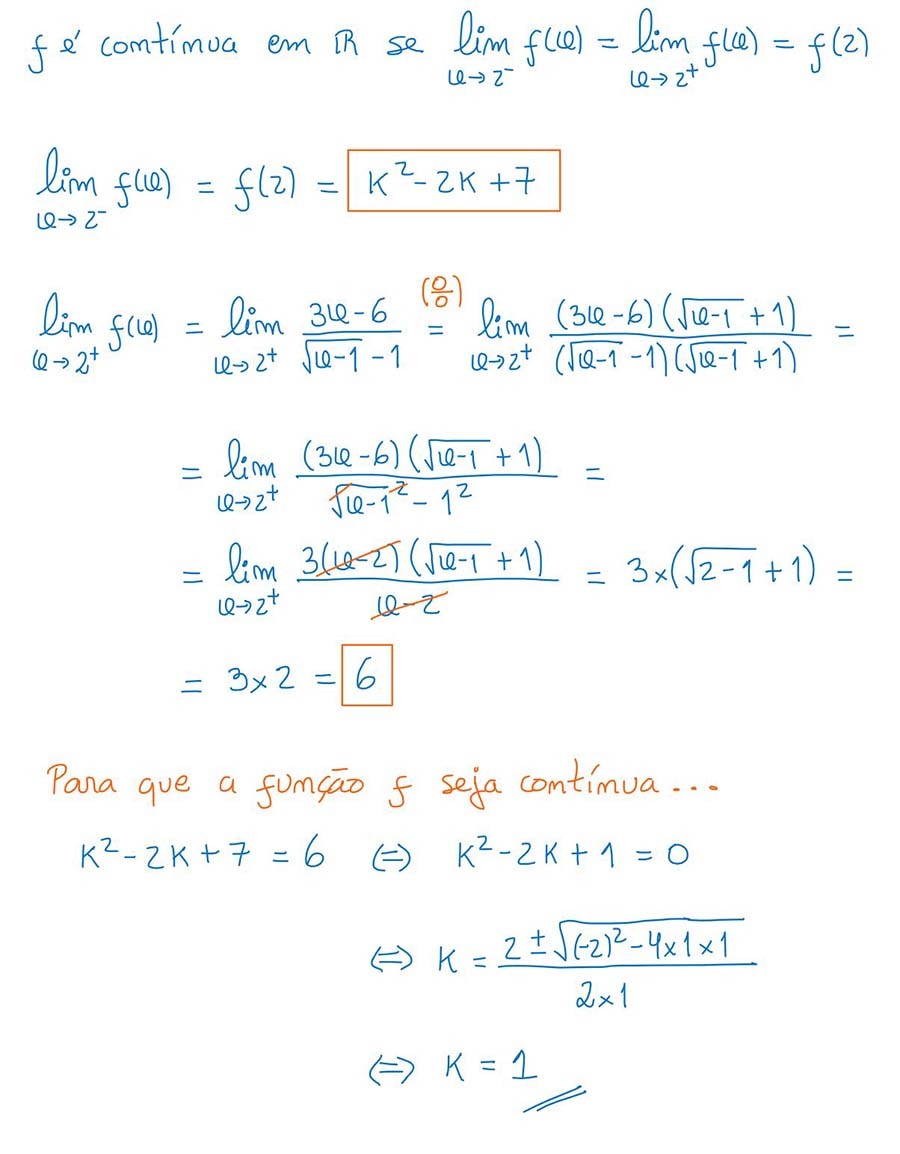 f é contínua em ℝ se lim_{x→2⁻} f(x) = lim_{x→2⁺} f(x) = f(2)
lim_{x→2⁻} f(x) = f(2) = K² - 2K + 7
lim_{x→2⁺} f(x) = lim_{x→2⁺} (3x-6)/(√(x-1) - 1) =^{(0/0)} lim_{x→2⁺} ((3x-6)(√(x-1) + 1))/((√(x-1) - 1)(√(x-1) + 1)) =
= lim_{x→2⁺} ((3x-6)(√(x-1) + 1))/(√(x-1)² - 1²) =
= lim_{x→2⁺} (3(x-2)(√(x-1) + 1))/(x-2) = 3×(√(2-1) + 1) =
= 3×2 = 6
Para que a função f seja contínua...
K² - 2K + 7 = 6 (=) K² - 2K + 1 = 0
(=) K = (2 ± √((-2)² - 4×1×1))/(2×1)
(=) K = 1